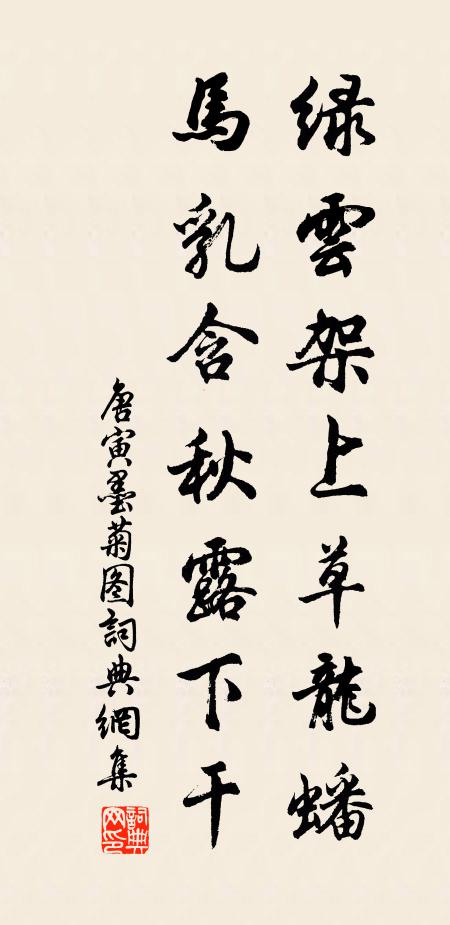 緑雲架上草龍蟠
馬乳含秋露下干
唐寅墨菊图詞典網集
詞典网印